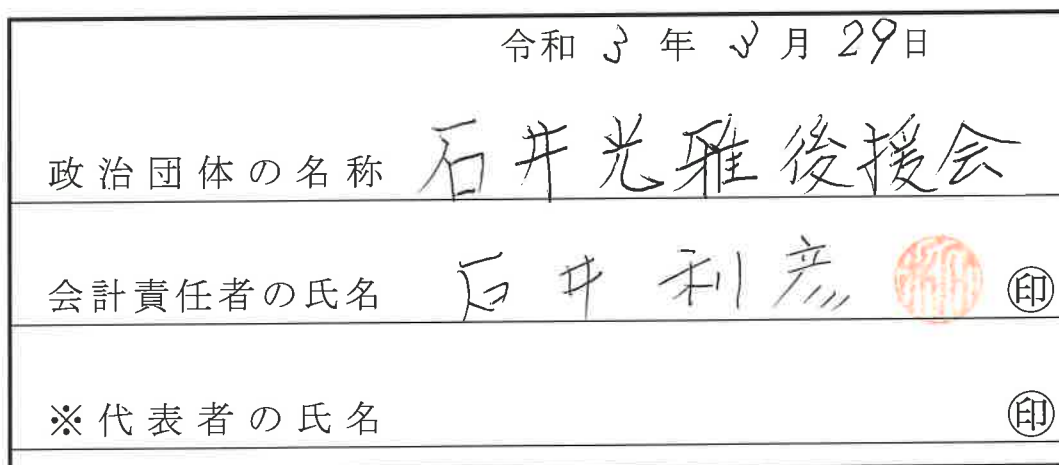 令和 3 年 3 月 29日
政治団体の名称 石井光雅後援会
会計責任者の氏名 石井利彦 ㊞
※代表者の氏名 ㊞